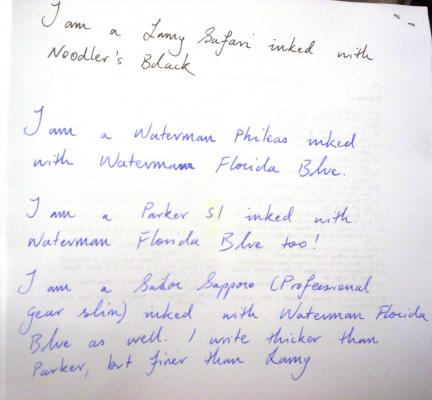 I am a Lamy Safari inked with
Noodler's Bdack
I am a Waterman Phileas inked
with Waterman Florida Blue.
I am a Parker 51 inked with
Waterman Florida Blue too!
I am a Sailor Sapporo (Professional
gear slim) inked with Waterman Florida
Blue as well. I write thicker than
Parker, but finer than Lamy